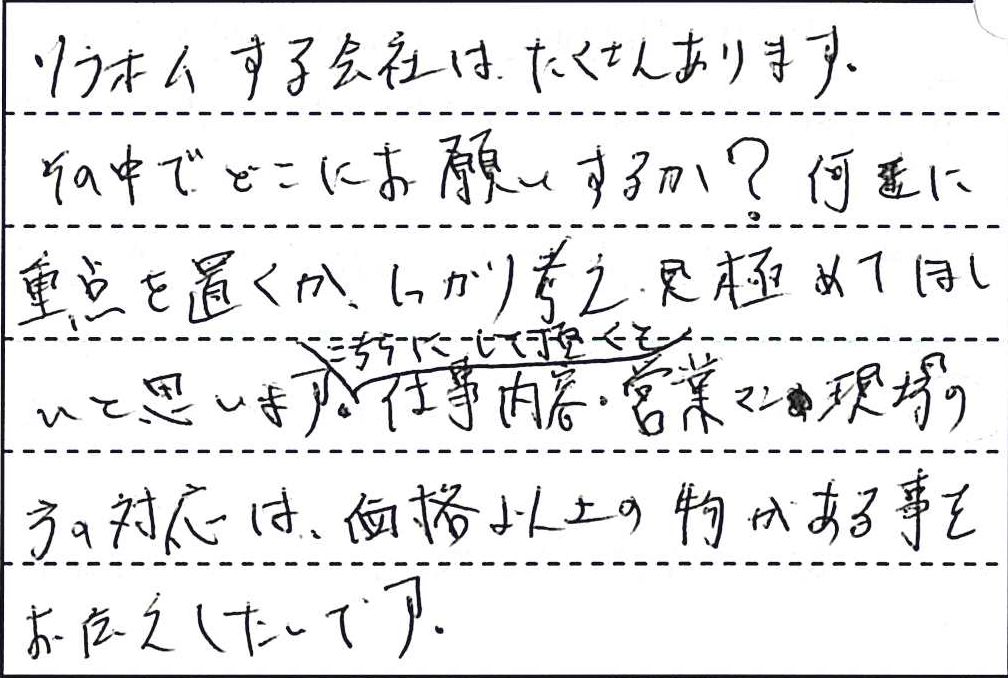 リフホムする会社は、たくさんあります。
その中でどこにお願いするか？何に
重点を置くか、しっかり考え見極めてほし
こちらにして頂くと
いと思います。仕事内容・営業マン現場の
方の対応は、価格以上の物がある事を
お伝えしたいです。